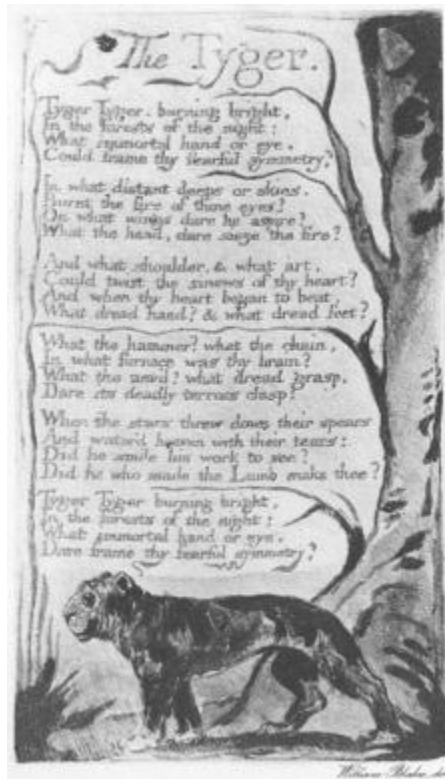 The Tyger.
Tyger Tyger. burning bright,
In the forests of the night:
What immortal hand or eye,
Could frame thy fearful symmetry?
In what distant deeps or skies.
Burnt the fire of thine eyes?
On what wings dare he aspire?
What the hand, dare sieze the fire?
And what shoulder, & what art,
Could twist the sinews of thy heart?
And when thy heart began to beat,
What dread hand? & what dread feet?
What the hammer? what the chain,
In what furnace was thy brain?
What the anvil? what dread grasp,
Dare its deadly terrors clasp?
When the stars threw down their spears
And water'd heaven with their tears:
Did he smile his work to see?
Did he who made the Lamb make thee?
Tyger Tyger burning bright,
In the forests of the night:
What immortal hand or eye,
Dare frame thy fearful symmetry?
William Blake